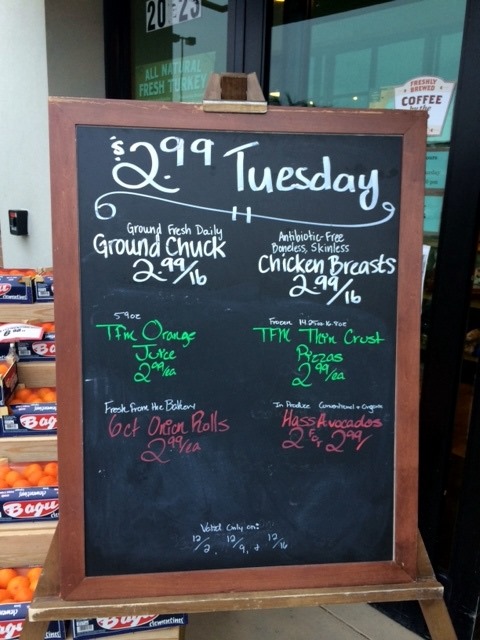 20 23
ALL NATURAL
FRESH TURKEY
FRESHLY
BREWED
COFFEE
$2.99 Tuesday
Ground Fresh Daily
Ground Chuck
2.99/lb
Antibiotic-Free
Boneless, Skinless
Chicken Breasts
2.99/lb
59oz
TFM Orange
Juice
2.99/ea
Frozen 14.25oz-16.9oz
TFM Thin Crust
Pizzas
2.99/ea
Fresh from the Bakery
6ct Onion Rolls
2.99/ea
In Produce Conventional + Organic
Hass Avocados
2 for 2.99/
Valid Only on:
12/2, 12/9, + 12/16
Bagu
Bagu